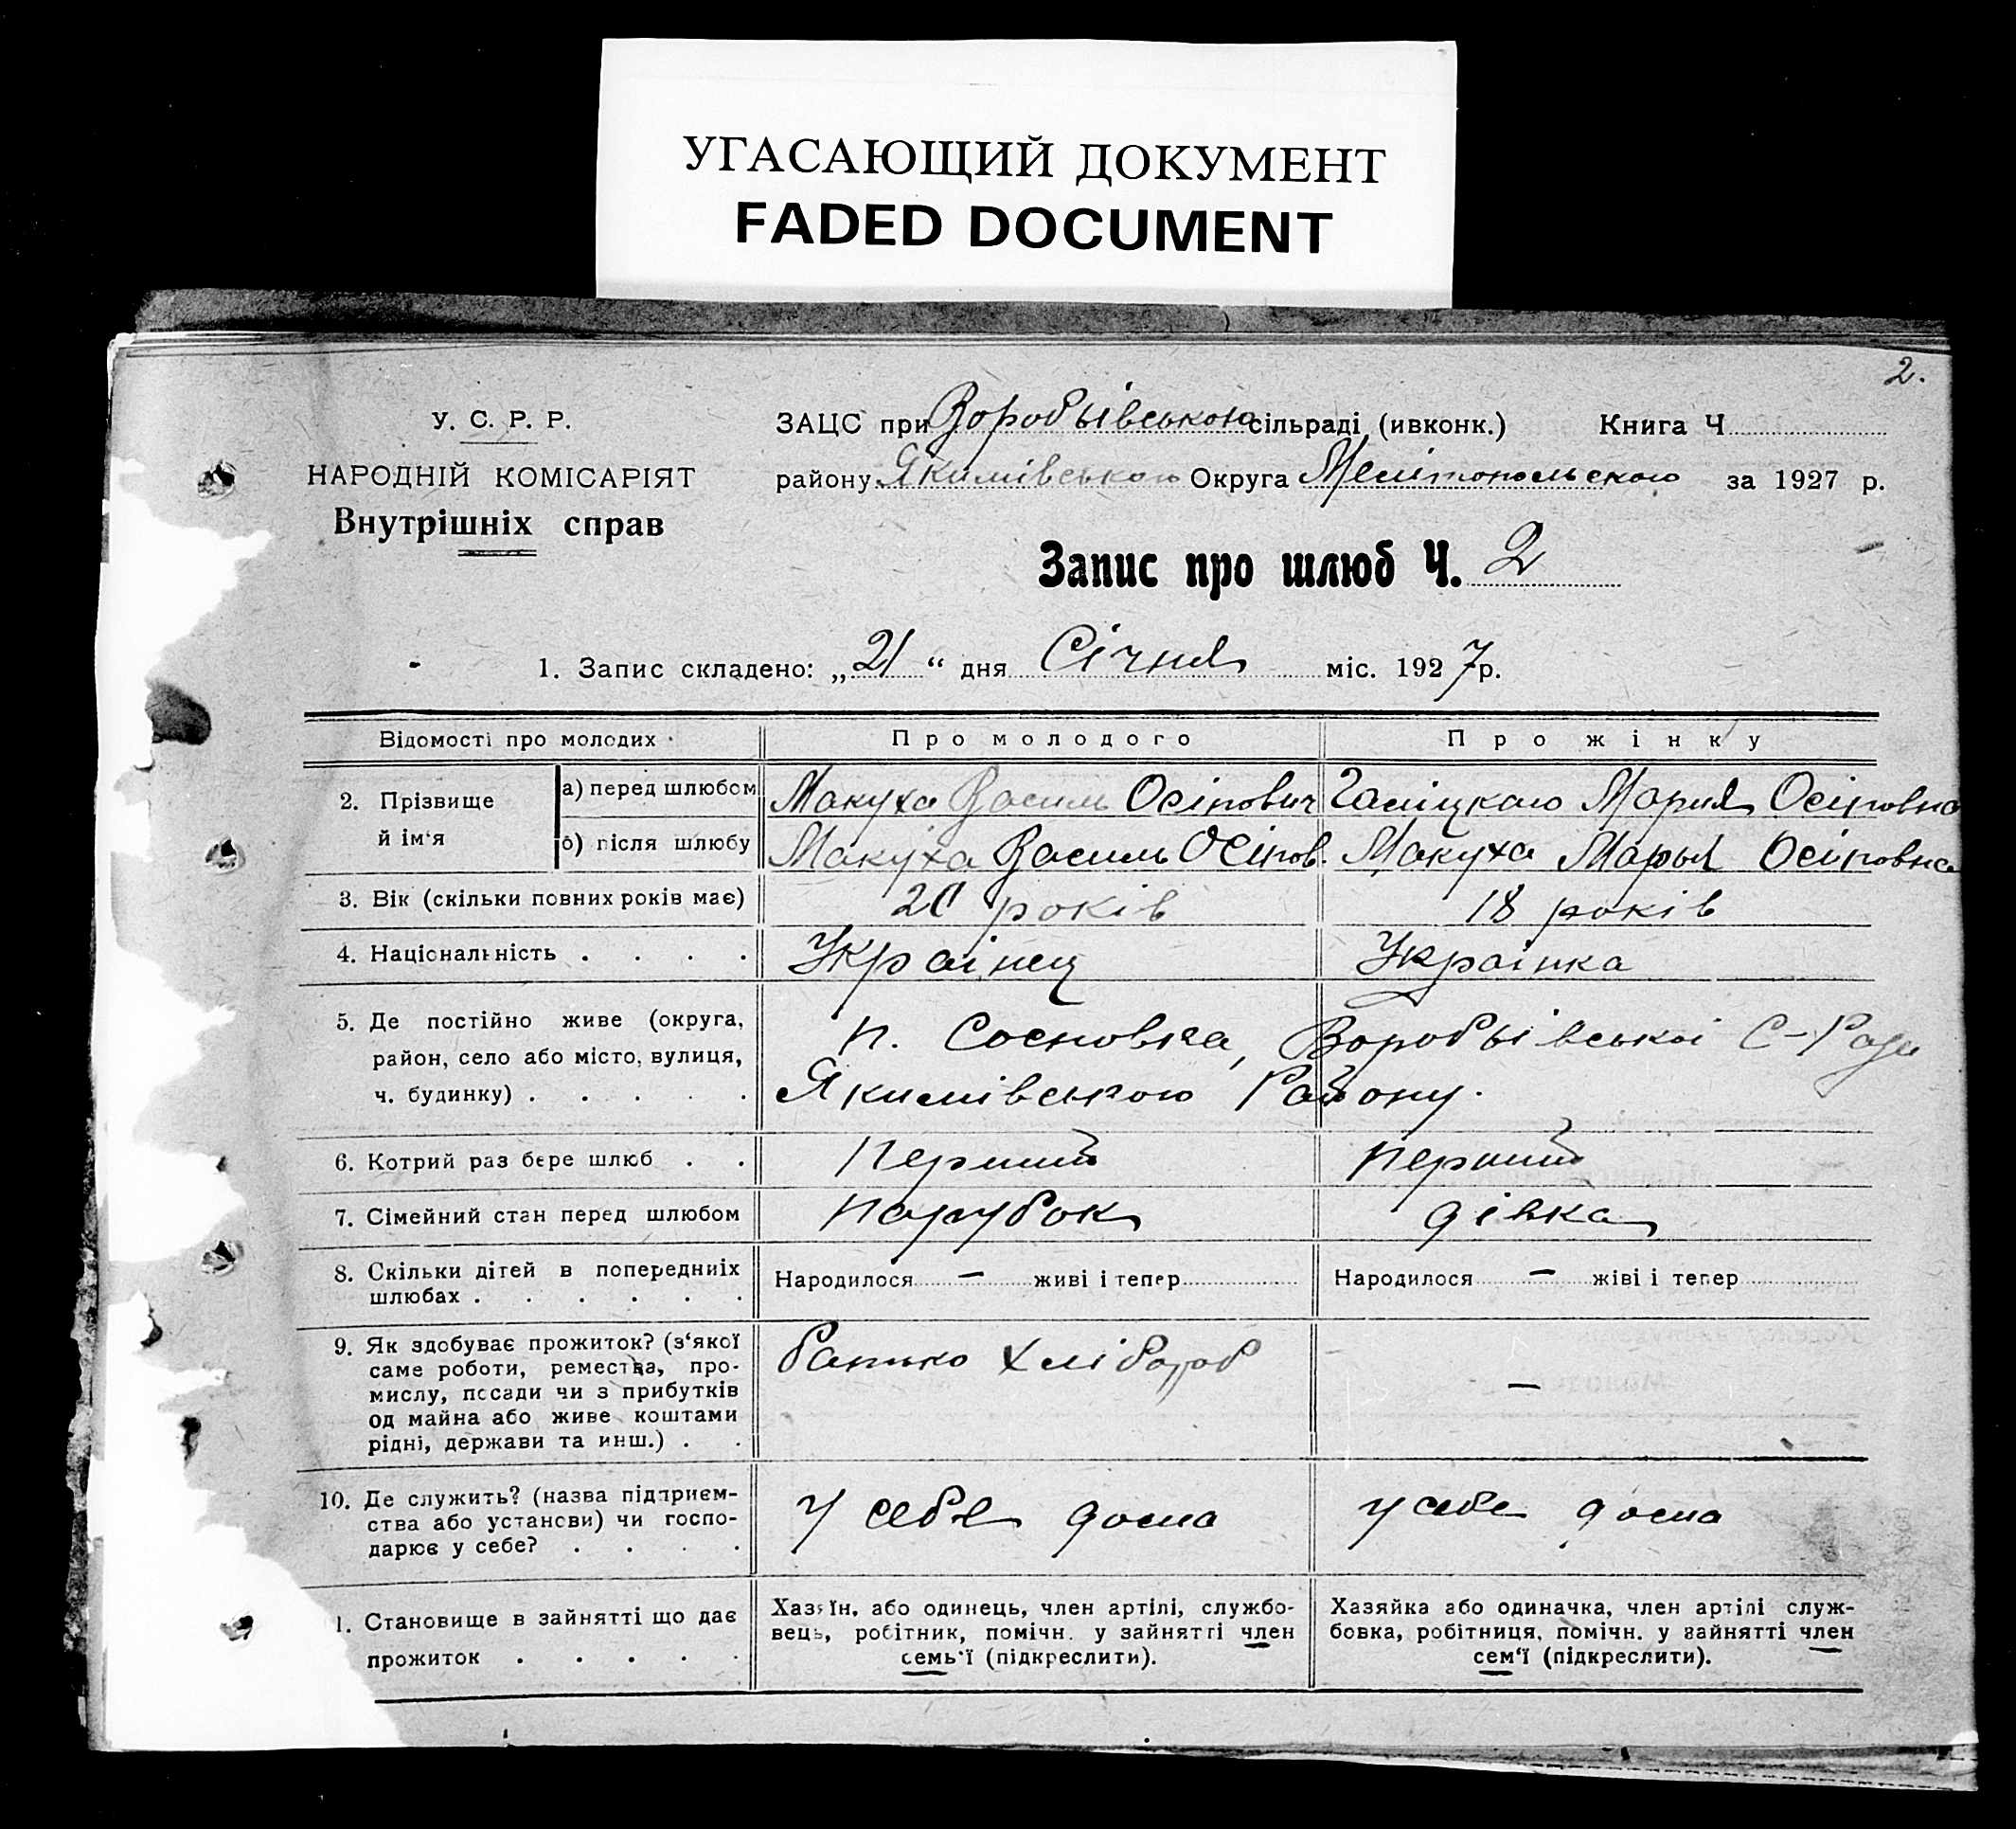 УГАСАЮЩИЙ ДОКУМЕНТ
FADED DOCUMENT
2.
У. С. Р. Р.
НАРОДНІЙ КОМІСАРІЯТ
Внутрішніх справ
ЗАЦС при Воробьївською сільраді (ивконк.) Книга Ч
району Якимівського Округа Мелітопольского за 1927 р.
Запис про шлюб Ч. 2
1. Запис складено: „21“ дня Січня міс. 1927 р.
Відомості про молодих Про молодого Про жінку
2. Прізвище й ім‘я
а) перед шлюбом Макуха Василь Осіпович Галіцкаю Мария Осіповна
б) після шлюбу Макуха Василь Осіпов. Макуха Марыя Осіповна
3. Вік (скільки повних років має) 20 років 18 років
4. Національність . . . . Украінец Украінка
5. Де постійно живе (округа,
район, село або місто, вулиця,
ч. будинку) . . . . .
п. Сосновка, Воробьівськоі С-Ради
Якимівського Району.
6. Котрий раз бере шлюб . . Перший перший
7. Сімейний стан перед шлюбом парубок дівка
8. Скільки дітей в попередниіх
шлюбах . . . . . .
Народилося — живі і тепер
Народилося — жіві і тепер
9. Як здобуває прожиток? (з‘якої
саме роботи, ремества, про-
мислу, посади чи з прибутків
од майна або живе коштами
рідні, держави та инш.) . .
батько хлібороб
—
10. Де служить? (назва підприєм-
ства або установи) чи госпо-
дарює у себе? . . . .
у себе дома у себе дома
1. Становище в зайнятті що дає
прожиток . . . . .
Хазяїн, або одинець, член артілі, службо-
вець, робітник, помічн. у зайнятті член
семь‘ї (підкреслити).
Хазяйка або одиначка, член артілі служ-
бовка, робітниця, помічн. у зайнятті член
сем‘ї (підкреслити).